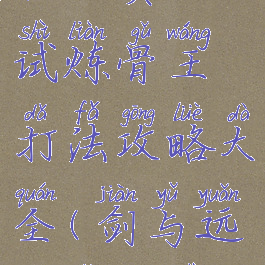 shì liàn gǔ wáng
试炼骨王
dǎ fǎ gōng lüè dà
打法攻略大
quán jiàn yǔ yuǎn
全(剑与远